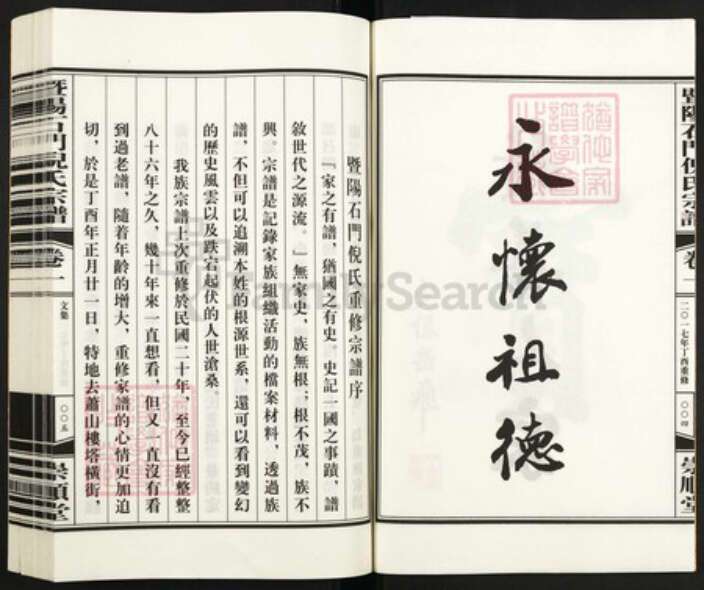 暨陽石門倪氏宗譜
卷一
二〇一七年丁酉重修
〇〇四
崇順堂
永懷祖德
暨陽石門倪氏重修宗譜序
『家之有譜，猶國之有史。史記一國之事蹟，譜
敘世代之源流。』無家史，族無根；根不茂，族不
興。宗譜是記錄家族組織活動的檔案材料，透過族
譜，不但可以追溯本姓的根源世系，還可以看到變幻
的歷史風雲以及跌宕起伏的人世滄桑。
我族宗譜上次重修於民國二十年，至今已經整整
八十六年之久，幾十年來一直想看，但又一直沒有看
到過老譜，隨着年齡的增大，重修家譜的心情更加迫
切，於是丁酉年正月廿一日，特地去蕭山樓塔橫街，
暨陽石門倪氏宗譜
卷一
文集
〇〇五
崇順堂
FamilySearch